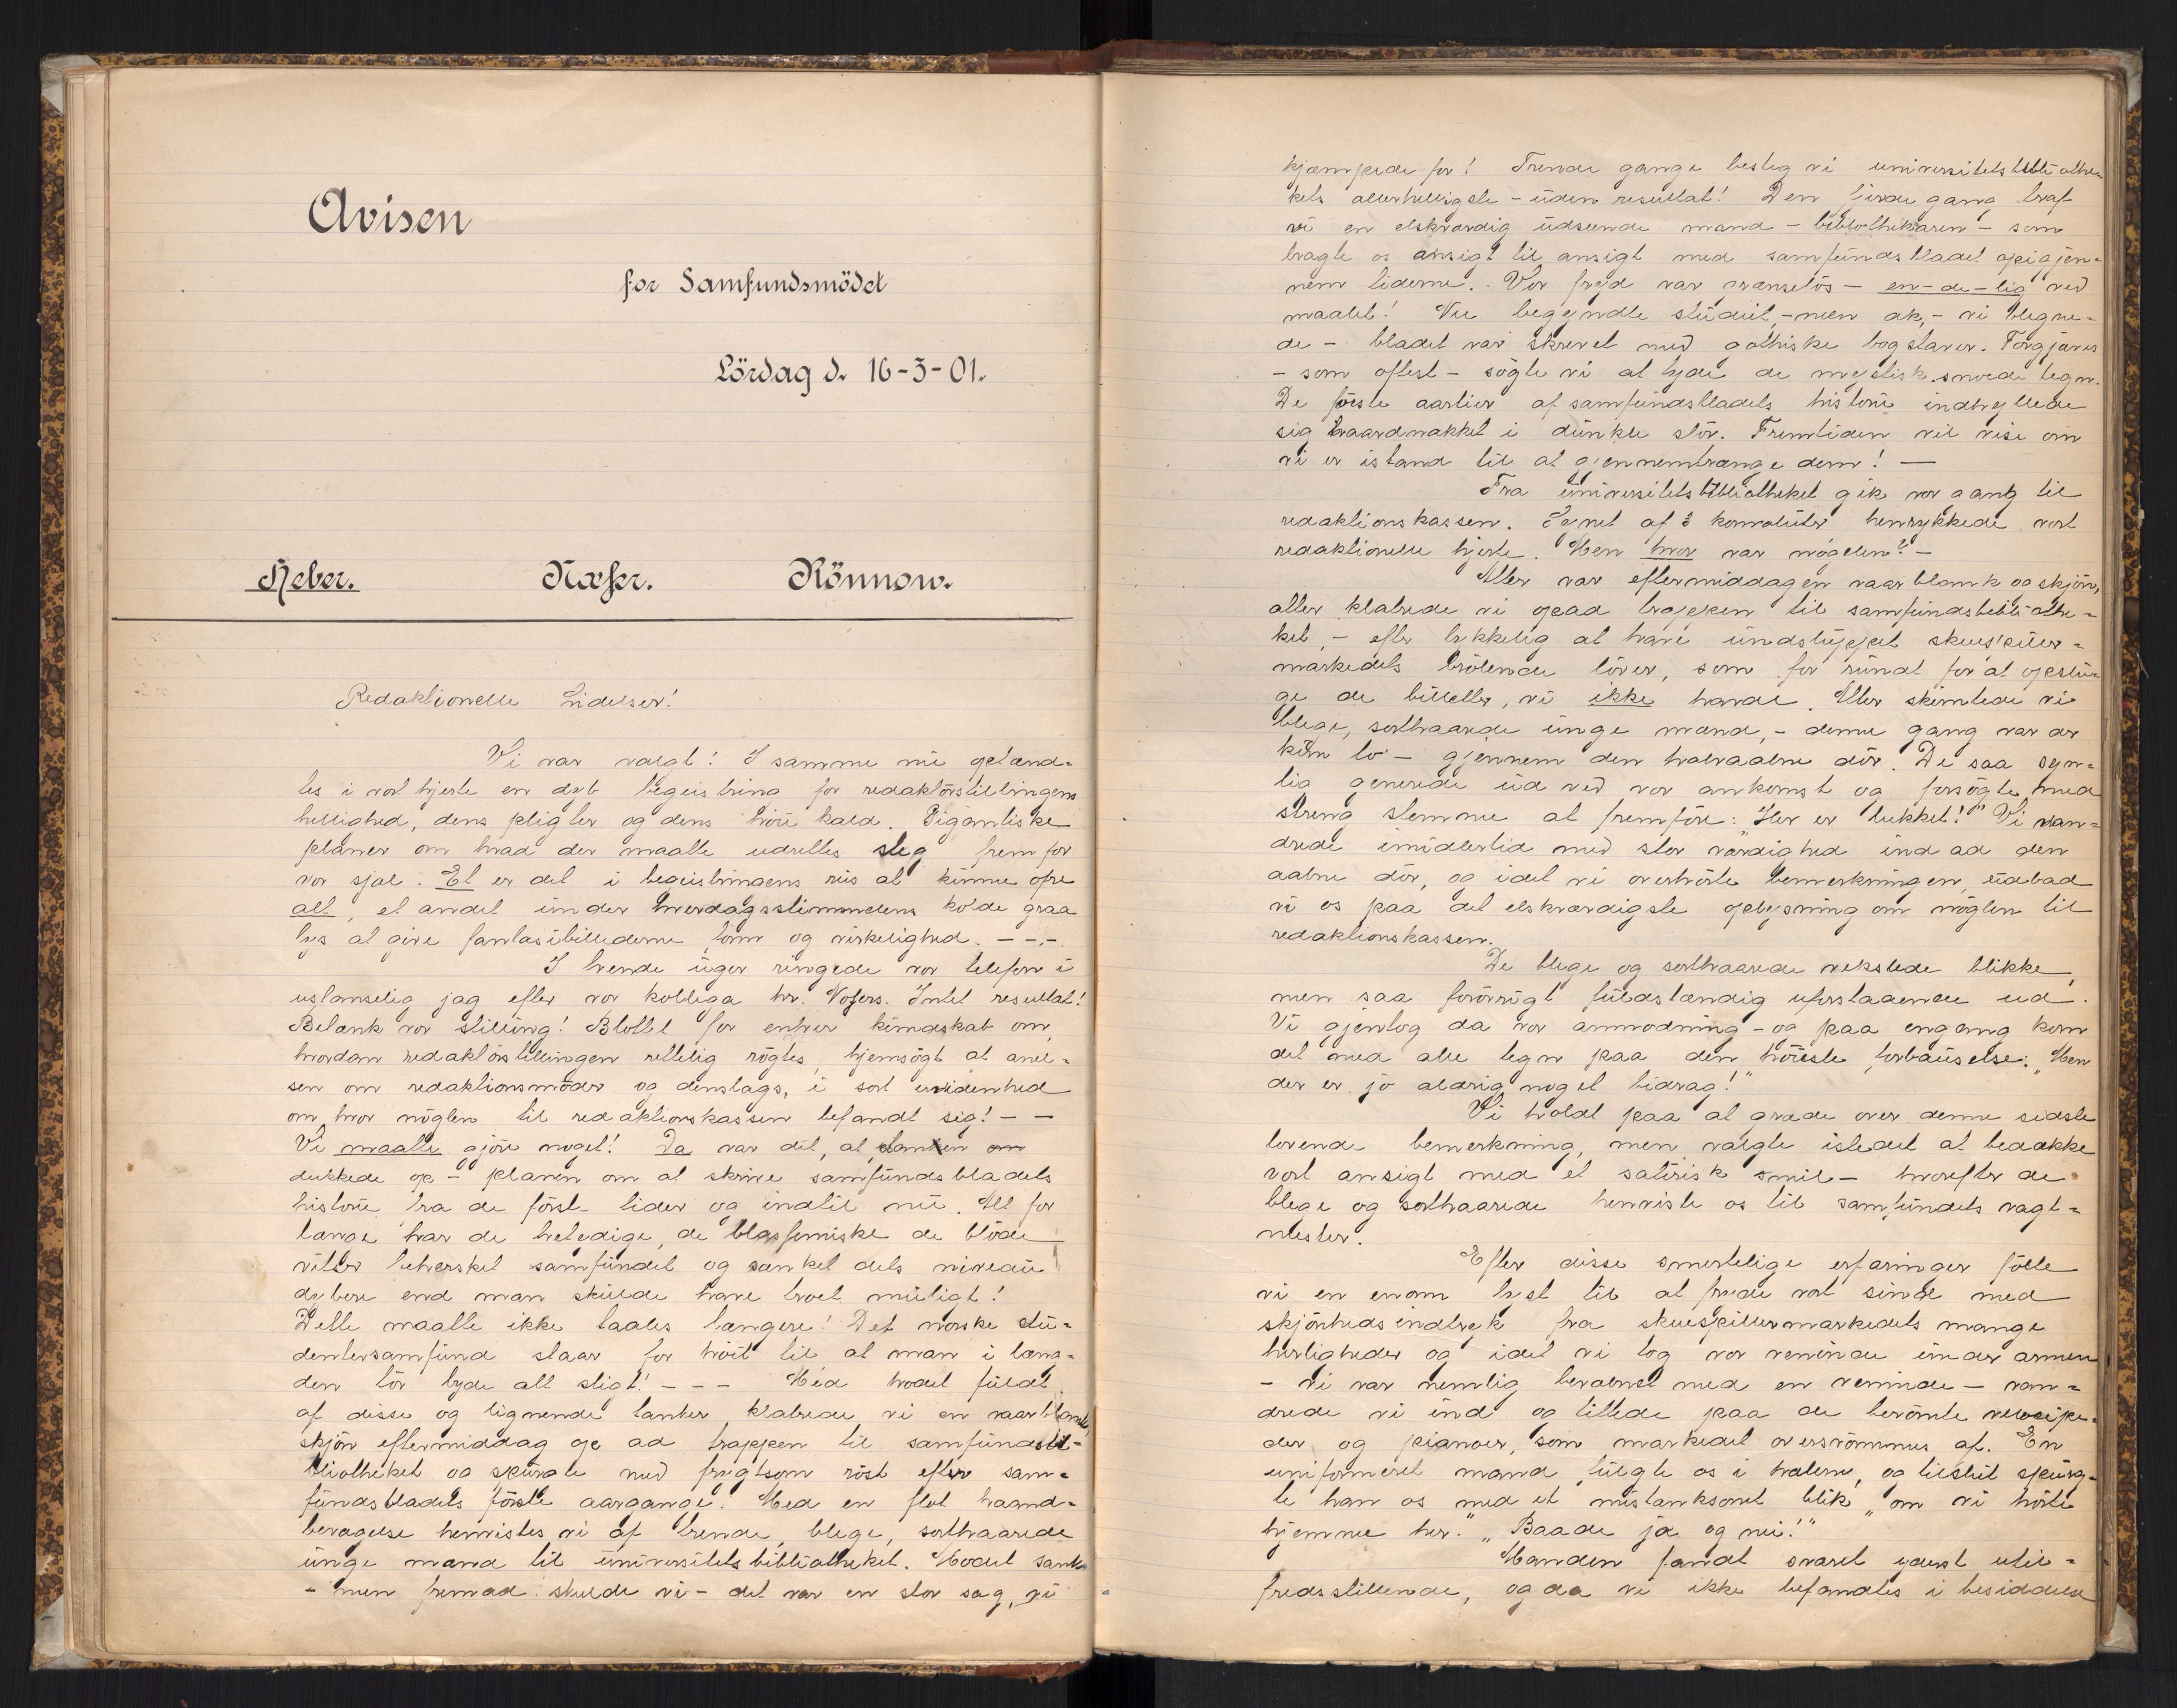 Avisen
for Samfundsmödet
Lördag d. 16-3-01.
Heber. Næser. Rönnow.
Redaktionelle Lidelser!
Vi var valgt! I samme nu optænd-
tes i vort hjerte en dyb begeistring for redaktörstillingens
hellighed, dens pligter og dens höie kald. Gigantiske
planer om hvad der maatte udrettes steg frem for
vor sjæl. Et er det i begeistringens rus at kunne ofre
alt, et andet under hverdagsstimmelens kolde graa
lys at give fantasibillederne form og virkelighed. - - -
I trende uger ringede vor telefon i
ustanselig jag efter vor kollega hr. Næsers. Intet resultat!
Betænk vor stilling! Blottet for enhver kundskab om,
hvordan redaktörstillingen rettelig rögtes, hjemsögt at anel-
sen om redaktionsmöder og denslags, i sort uvidenhed
om hvor nöglen til redaktionskassen befandt sig! - -
Vi maatte gjöre noget! Da var det, at tanken om
dukkede op - planen om at skrive samfundsbladets
historie fra de förste tider og indtil nu. Alt for
længe har de heledige, de blasfemiske de blöde
vitser behersket samfundet og sænket dets niveau
dybere end man skulde have troet muligt!
Dette maatte ikke taales længere! Det norske stu-
dentersamfund staar for höit til, at man i læng-
den tör byde alt sligt! - - - Med hodet fuldt
af disse og lignende tanker klatrede vi en vaarblank,
skjön eftermiddag op ad trappen til samfundsbi-
bliotheket og spurgte med frygtsom röst efter sam-
fundsbladets förste aargange. Med en flot haand-
bevægelse henvistes vi af trende, blege, sorthaarede
unge mænd til universitetsbibliotheket. Modet sank
- men fremad skulde vi - det var en stor sag, vi
kjæmpede for! Trende gange besteg vi universitetsbibliothe-
kets allerhelligste - uden resultat! Den fjerde gang traf
vi en elskværdig udseende mand - bibliothekaren - som
bragte os ansigt til ansigt med samfundsbladet opigjen-
nem tiderne. Vor fryd var grænselös - en-de-lig ved
maalet! Nu begyndte studiet, - men ak, - vi blegne-
de - bladet var skrevet med gothiske bogstaver. Forgjæves
- som oftest - sögte vi at tyde de mystisk snoede tegn.
De förste aartier af samfundsbladets historie indhyllede
sig haardnakket i dunkle slör. Fremtiden vil vise om
vi er istand til at gjennemtrænge dem! —
Fra universitetsbibliotheket gik vor gang til
redaktionskassen. Synet af 3 konvolutter henrykkede vort
redaktionelle hjerte. Men hvor var nögelen? -
Atter var eftermiddagen vaarblank og skjön,
atter klatrede vi opad trappen til samfundsbibliothe-
ket, - efter lykkelig at have undsluppet skuespiller-
markedets brölende löver, som for rundt for at opslu-
ge de billetter, vi ikke havde. Atter skimtede vi
blege, sorthaarede unge mænd, - denne gang var der
kun to - gjennem den halvaabne dör. De saa syn-
lig generede ud ved vor ankomst og forsögte med
streng stemme at fremföre: "Her er lukket!" Vi van-
drede imidlertid med stor værdighed ind ad den
aabne dör, og idet vi overhörte bemerkningen, udbad
vi os paa det elskværdigste oplysning om nöglen til
redaktionskassen.
De blege og sorthaarede vekslede blikke,
men saa forövrigt fuldstændig uforstaaende ud.
Vi gjentog da vor anmodning - og paa engang kom
det med alle tegn paa den höieste forbauselse: "Men
der er jo aldrig noget bidrag!"
Vi holdt paa at græde over denne sidste
lovende bemerkning, men valgte istedet at bedække
vort ansigt med et satirisk smil - hvorefter de
blege og sorthaarede henviste os til samfundets vagt-
mester.
Efter disse smertelige erfaringer fölte
vi en enorm lyst til at fryde vort sind med
skjönhedsindtryk fra skuespillermarkedets mange
herligheder og idet vi tog vor veninde under armen
- vi var nemlig bevæbnet med en veninde - van-
drede vi ind og tittede paa de berömte velocipe-
der og pianoer, som markedet oversvömmes af. En
uniformeret mand fulgte os i hælene, og tilslut spurg-
te han os med et mistænksomt blik "om vi hörte
hjemme her." "Baade ja og nei!"
Manden fandt svaret yderst util-
fredsstillende, og da vi ikke befandtes i besiddelse